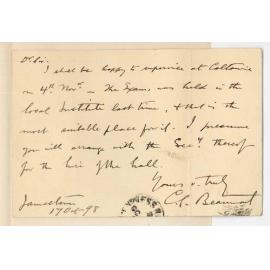 Dr Sir.
I shall be happy to supervise at Caltowie
on 4th Novr. — The Exam. was held in the
local Institute last time, & that is the
most suitable place for it. I presume
you will arrange with the Secy thereof
for the hire of the hall.
Yours v. truly
C. S. Beaumont
Jamestown
17 Oct 98